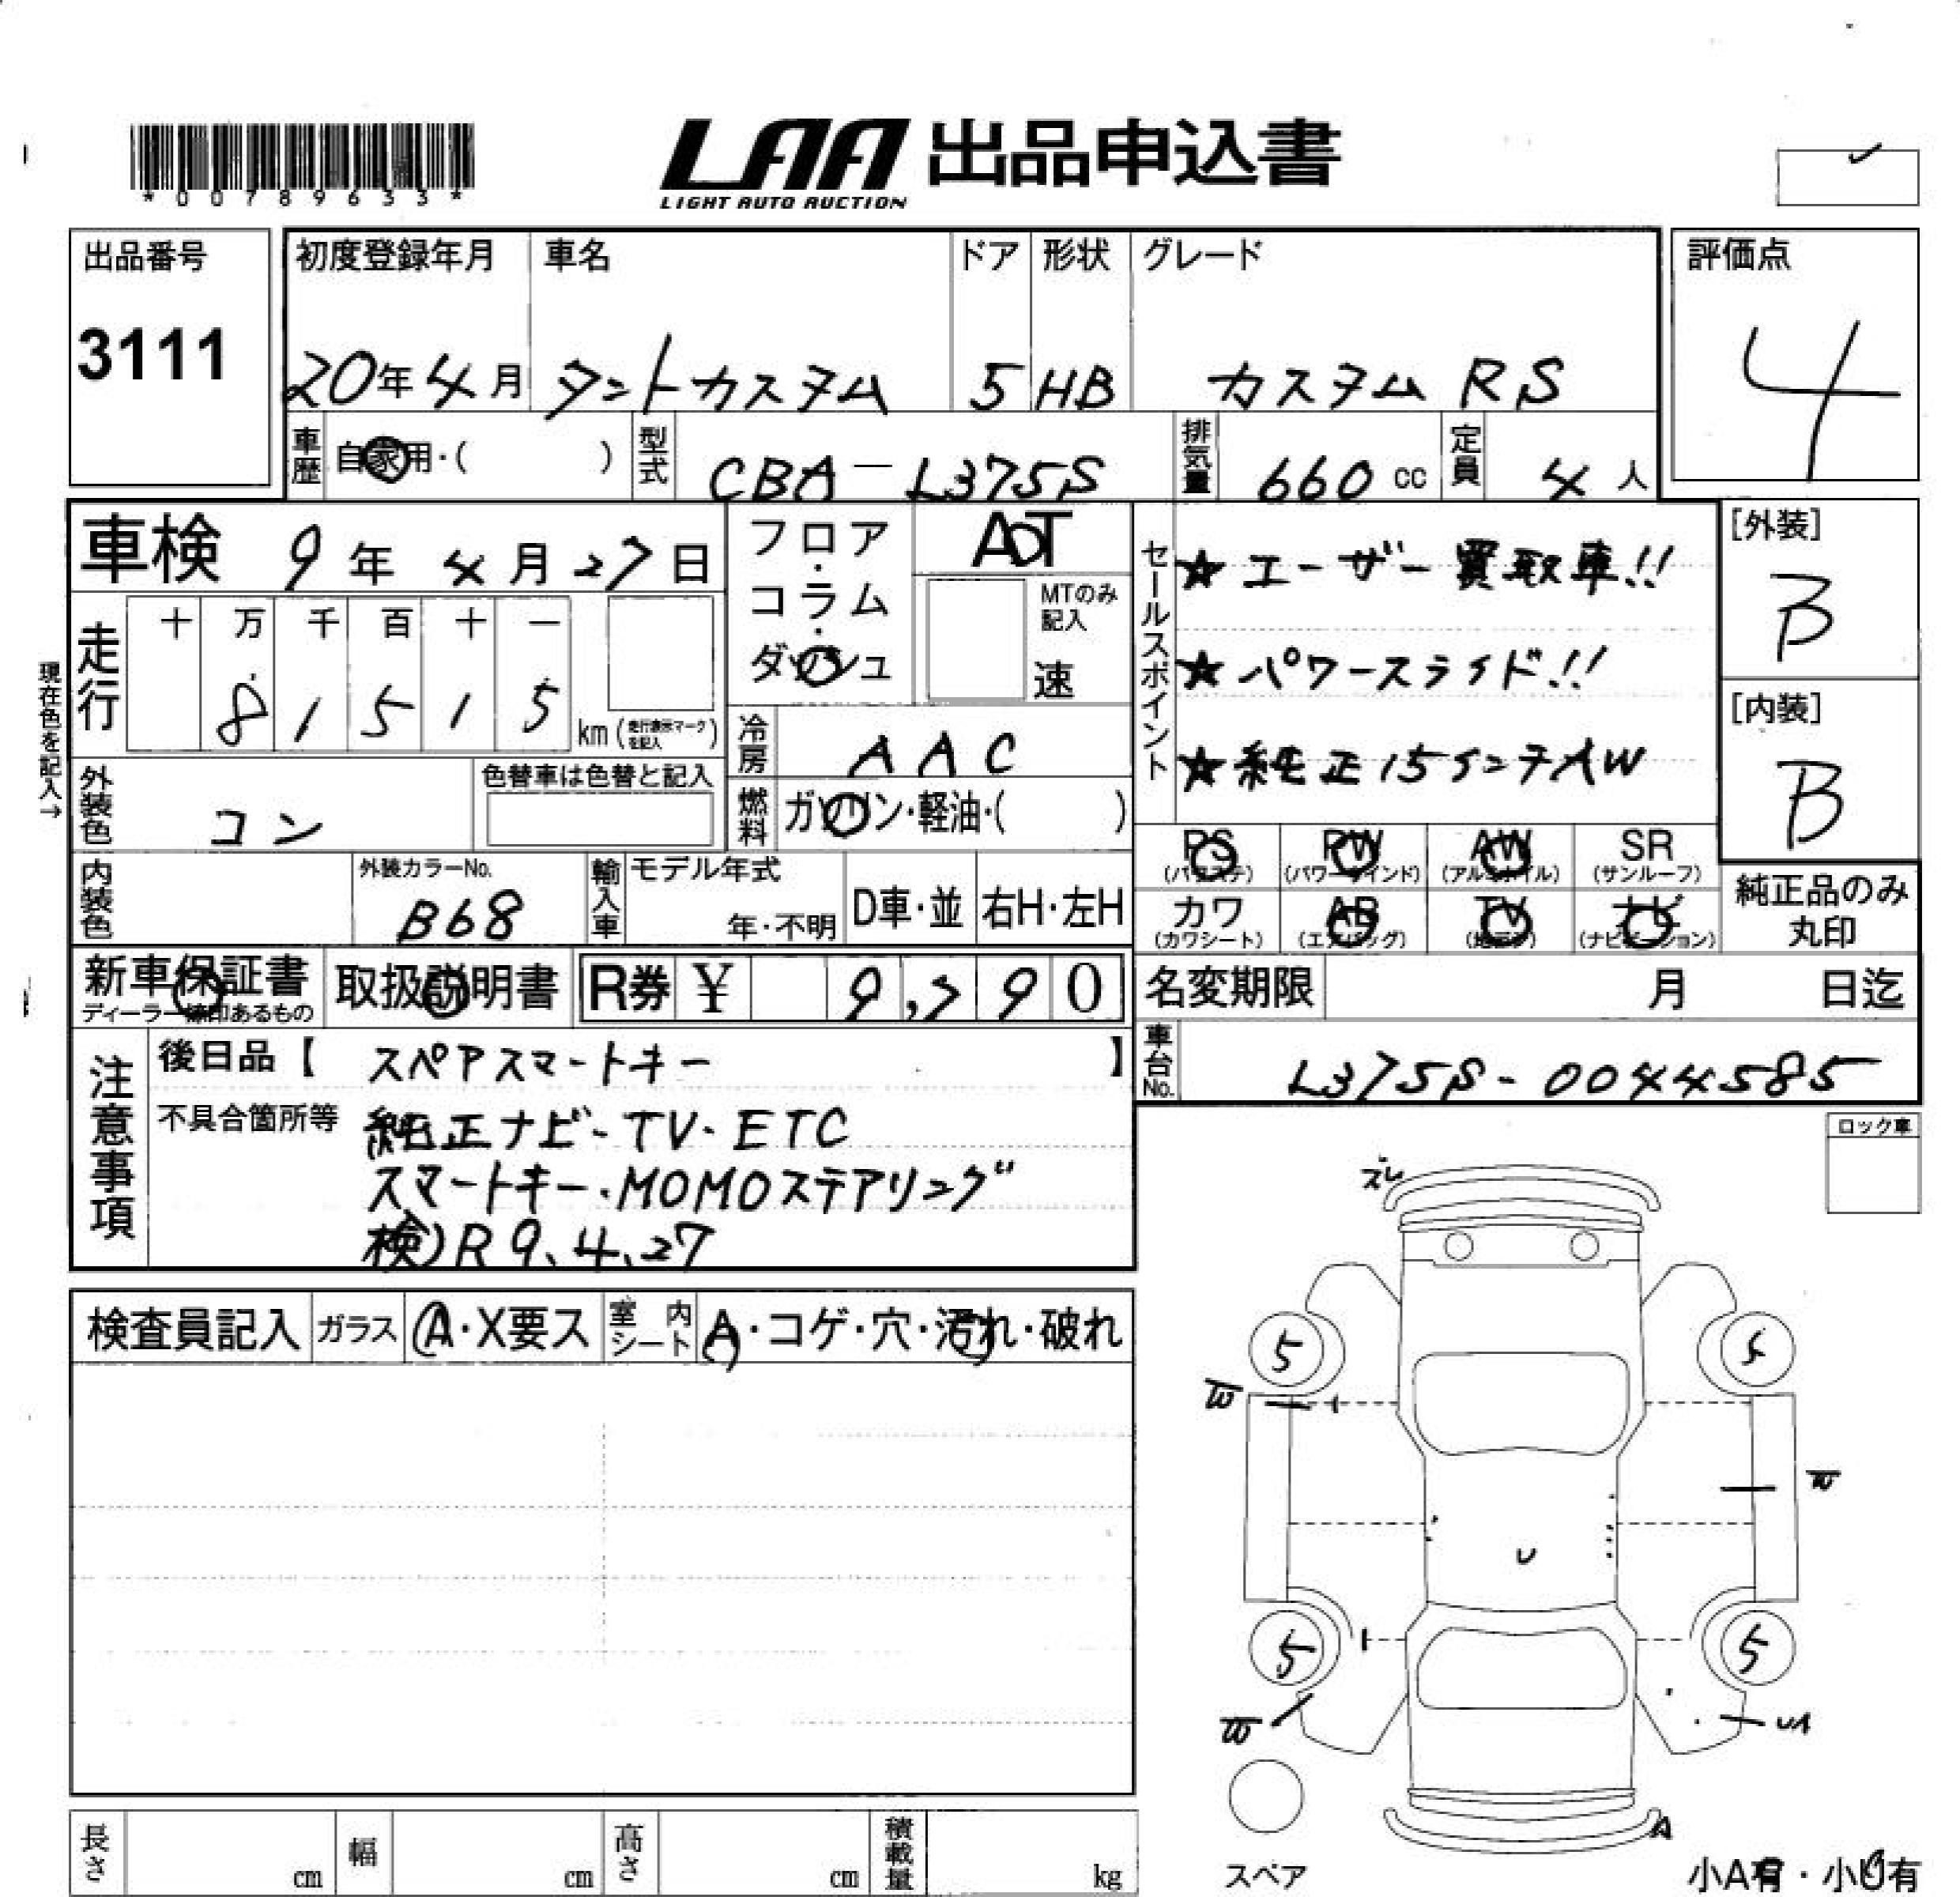 *00789633*
LAA 出品申込書
LIGHT AUTO AUCTION
出品番号
3111
初度登録年月
20年4月
車名
タントカスタム
ドア
5
形状
HB
グレード
カスタム RS
評価点
4
車歴
自家用・( )
型式
CBA-L375S
排気量
660 cc
定員
4 人
車検 9年 4月 27日
フロア・コラム・ダッシュ
AT
MTのみ記入
速
セールスポイント
★ユーザー買取車!!
★パワースライド!!
★純正15インチAW
[外装]
B
[内装]
B
現在色を記入→
走行
十 万 千 百 十 一
8 1 5 1 5 km (走行表示マークを記入)
冷房
AAC
外装色
コン
色替車は色替と記入
燃料
ガソリン・軽油・( )
PS
(パワステ)
PW
(パワーウインド)
AW
(アルミホイル)
SR
(サンルーフ)
カワ
(カワシート)
AB
(エアバッグ)
TV
(地デジ)
ナビ
(ナビゲーション)
純正品のみ丸印
内装色
外装カラーNo.
B68
輸入車
モデル年式
年・不明
D車・並
右H・左H
新車保証書
ディーラー捺印あるもの
取扱説明書
R券 ¥ 9,790
名変期限 月 日迄
車台No.
L375S-0044585
注意事項
後日品【 スペアスマートキー 】
不具合箇所等
純正ナビ・TV・ETC
スマートキー・MOMOステアリング
検)R9.4.27
ロック車
ズレ
検査員記入
ガラス
A・X要ス
室内シート
A・コゲ・穴・汚れ・破れ
5
5
W
W
U
5
5
W
UA
A
スペア
長さ cm
幅 cm
高さ cm
積載量 kg
小A有・小U有